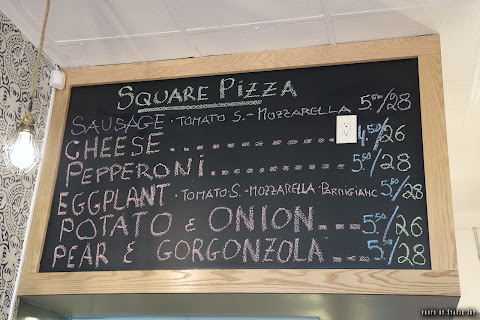 SQUARE PIZZA
SAUSAGE · TOMATO S. - MOZZARELLA 5.50/28
CHEESE 4.50/26
PEPPERONI 5.50/28
EGGPLANT · TOMATO S. - MOZZARELLA - PARMIGIANC 5.50/28
POTATO & ONION 5.50/26
PEAR & GORGONZOLA 5.50/28
PHOTO BY STACIE JOY